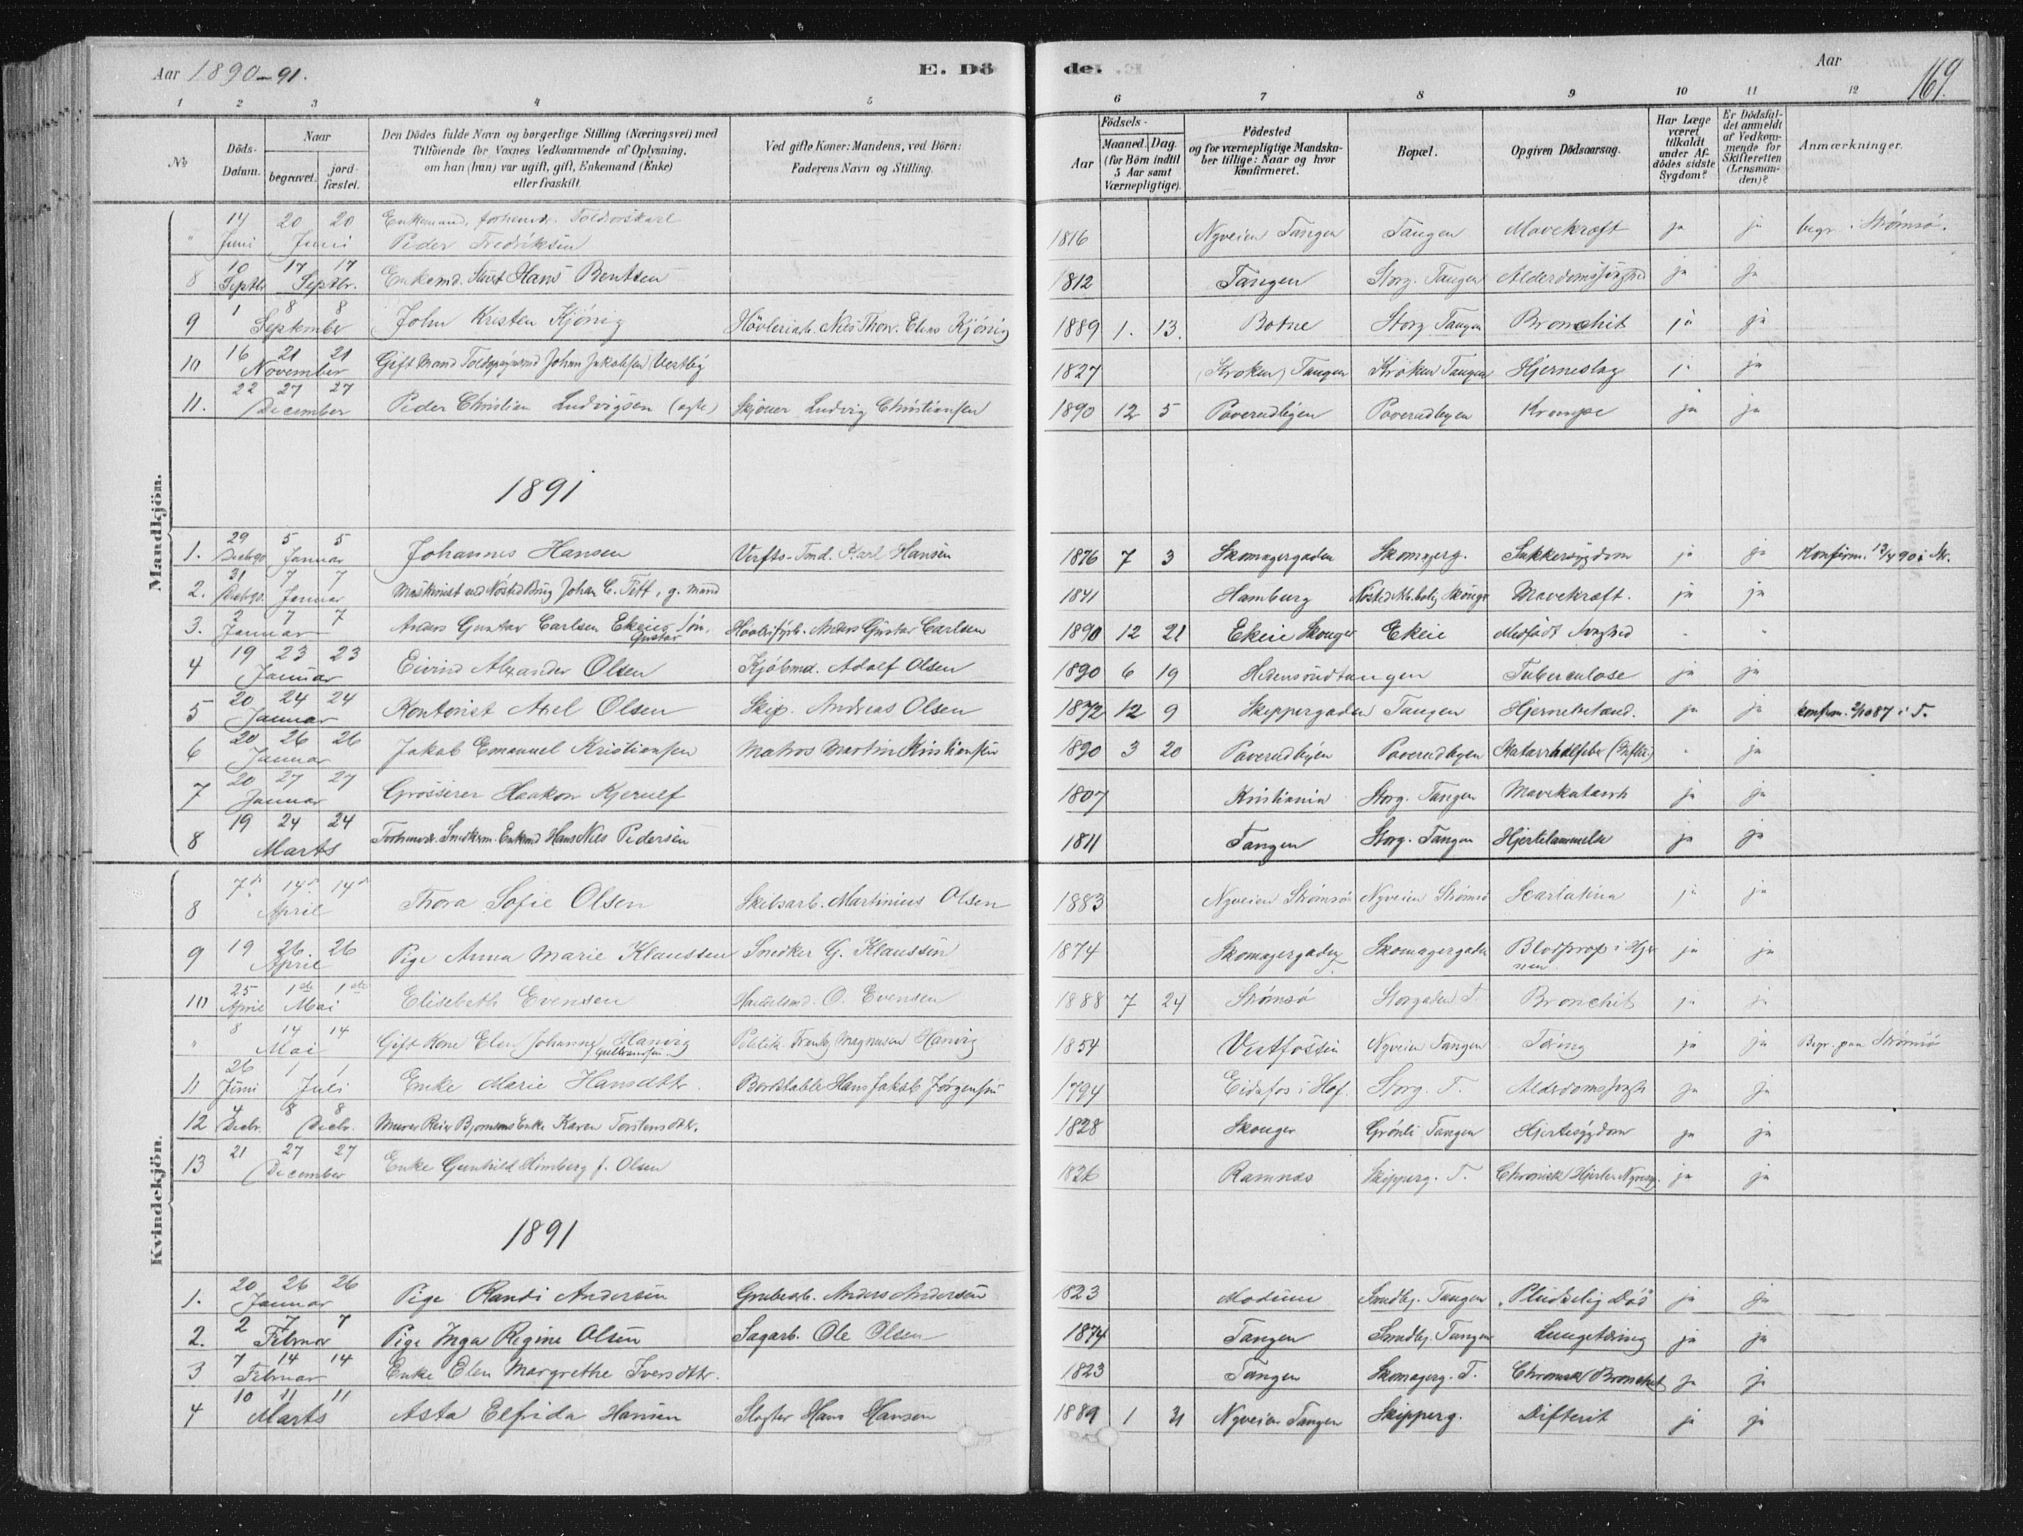 Aar 1890-91.
E. Döde.
Aar
169.
1 2 3 4 5 6 7 8 9 10 11 12
No
Döds-Datum.
Naar
begravet. jordfæstet.
Den Dödes fulde Navn og borgerlige Stilling (Næringsvei) med
Tilföiende for Voxnes Vedkommende af Oplysning.
om han (hun) var ugift, gift, Enkemand (Enke)
eller fraskilt.
Ved gifte Koner: Mandens, ved Börn:
Faderens Navn og Stilling.
Födsels-
Aar Maaned. Dag.
(for Börn indtil
5 Aar samt
Værnepligtige).
Födested
og for værnepligtige Mandskaber tillige: Naar og hvor
konfirmeret.
Bopæl.
Opgiven Dödsaarsag.
Har Læge været tilkaldt under Afdödes sidste Sygdom?
Er Dödsfaldet anmeldt af Vedkommende for Skifteretten (Lensmanden)?
Anmærkninger.
Mandkjön.
" 14 Juni 20 20 Juni Enkemand, forhenv. Toldorskarl Peder Fredriksen 1816 Nyveien Tangen Tangen Mavekræft ja ja begr. Strømsø.
8 10 Septbr 17 17 Septbr. Enkemd. Hans Bentsen 1812 Tangen Storg. Tangen ja ja
9 1 8 8 September John Kristen Kjönig Hövleriarb. Nils Thorv. Elias Kjönig 1889 1. 13. Botne Storg Tangen Bronchit ja ja
10 16 21 21 November Gift Mand Johan Jakobsen Vestby 1827 (Kroken) Tangen Kroken Tangen Hjerneslag ja ja
11. 22 27 27 December Peder Christian Ludvigsen (ægte) Skjöuer Ludvig Christiansen 1890 12 5 Poverudbyen Poverudbyen Krampe ja ja
1891
1. 29 Decb90 5 5 Januar Johannes Hansen Verfts-Tmd. Karl Hansen 1876 7 3 Skomagergaden Skomagerg. Sukkersygdom ja ja Konfirm. 90 i
2. 31 Decb90. 7 7 Januar Maskinist ved Nøsted Brug Johan C. Tett, g. mand 1841 Hamburg Mavekræft. ja ja
3. 2 7 7 Januar Anders Gustav Carlsen Ekeies Søn. Gustav Anders Gustav Carlsen 1890 12 21 Ekeie Skouger Ekeie Medfødt Svaghed - "
4 19 23 23 Januar Eivind Alexander Olsen Kjöbmd. Adolf Olsen 1890 6 19 Hedensundtangen Tuberculose ja ja
5 20 24 24 Januar Kontorist Axel Olsen Skip. Andreas Olsen 1872 12 9 Skippergaden Tangen Hjernebetænd. ja ja konfirm. 2/10 87 i T.
6 20 26 26 Januar Jakob Emanuel Kristiansen Matros Martin Kristiansen 1890 3 20 Poverudbyen Poverudbyen Katarrhalfeber - ja
7 20 27 27 Januar Grosserer Haakon Kjerulf 1807 Kristiania Storg. Tangen Mavekatarrh ja ja
8 19 24 24 Marts Forhenv. Snedkerm. Enkmd Hans Nils Pedersen 1811 Tangen Storg. Tangen Hjertelammelse ja ja
Kvindekjön.
8 7de 14de 14de April Thora Sofie Olsen Skibsarb. Martinius Olsen 1883 Nyveien Strømsø Nyveien Strømsø Scarlatina ja ja
9 19 26. 26 April Pige Anna Marie Klaussen Snedker G. Klaussen 1874 Skomagergaden Skomagergaden Blodprop i Hjernen ja ja
10 25 April 1ste 1ste Mai Elisabeth Evensen O. Evensen 1888 7 24 Strømsø Storgaden T. Bronchit ja ja
" 8 14 14 Mai Gift Kone Elen Johanne Hanvig Magnusen Hanvig 1854 Vestfossen Nyveien Tangen Tæring ja ja Begr. paa Strømsø
11 26 Juni 1 1 Juli Enke Marie Hansdttr. Bordstabler Hans Jakob Jørgensen 1794 Eidsfos i Hof. Storg. T. ja ja
12 4 Decbr. 8 8 Decbr. Murer Reier Bjørnsens Enke Karen Torstensdtr. 1828 Skouger Grönli Tangen Hjertesygdom ja ja
13 21 27 27 December Enke Gunhild Himberg f. Olsen 1826 Ramnæs Skipperg. T. ja ja
1891
1. 20 26 26 Januar Pige Randi Andersen Grubearb. Anders Andersen 1823 Modum Smedbj. Tangen "Pludselig Död" ja ja
2. 2 7 7 Februar Pige Inga Regine Olsen Sagarb. Ole Olsen 1874 Tangen Smedbj. Tangen Lungetæring ja ja
3 7 14 14 Februar Enke Elen Margrethe Iversdtr. 1823 Tangen Skomagerg. T. Chronisk Bronchit ja ja
4 10 11 11 Marts Asta Elfrida Hansen Slagter Hans Hansen 1889 1 31 Nyveien Tangen Skipperg. Difterit ja ja